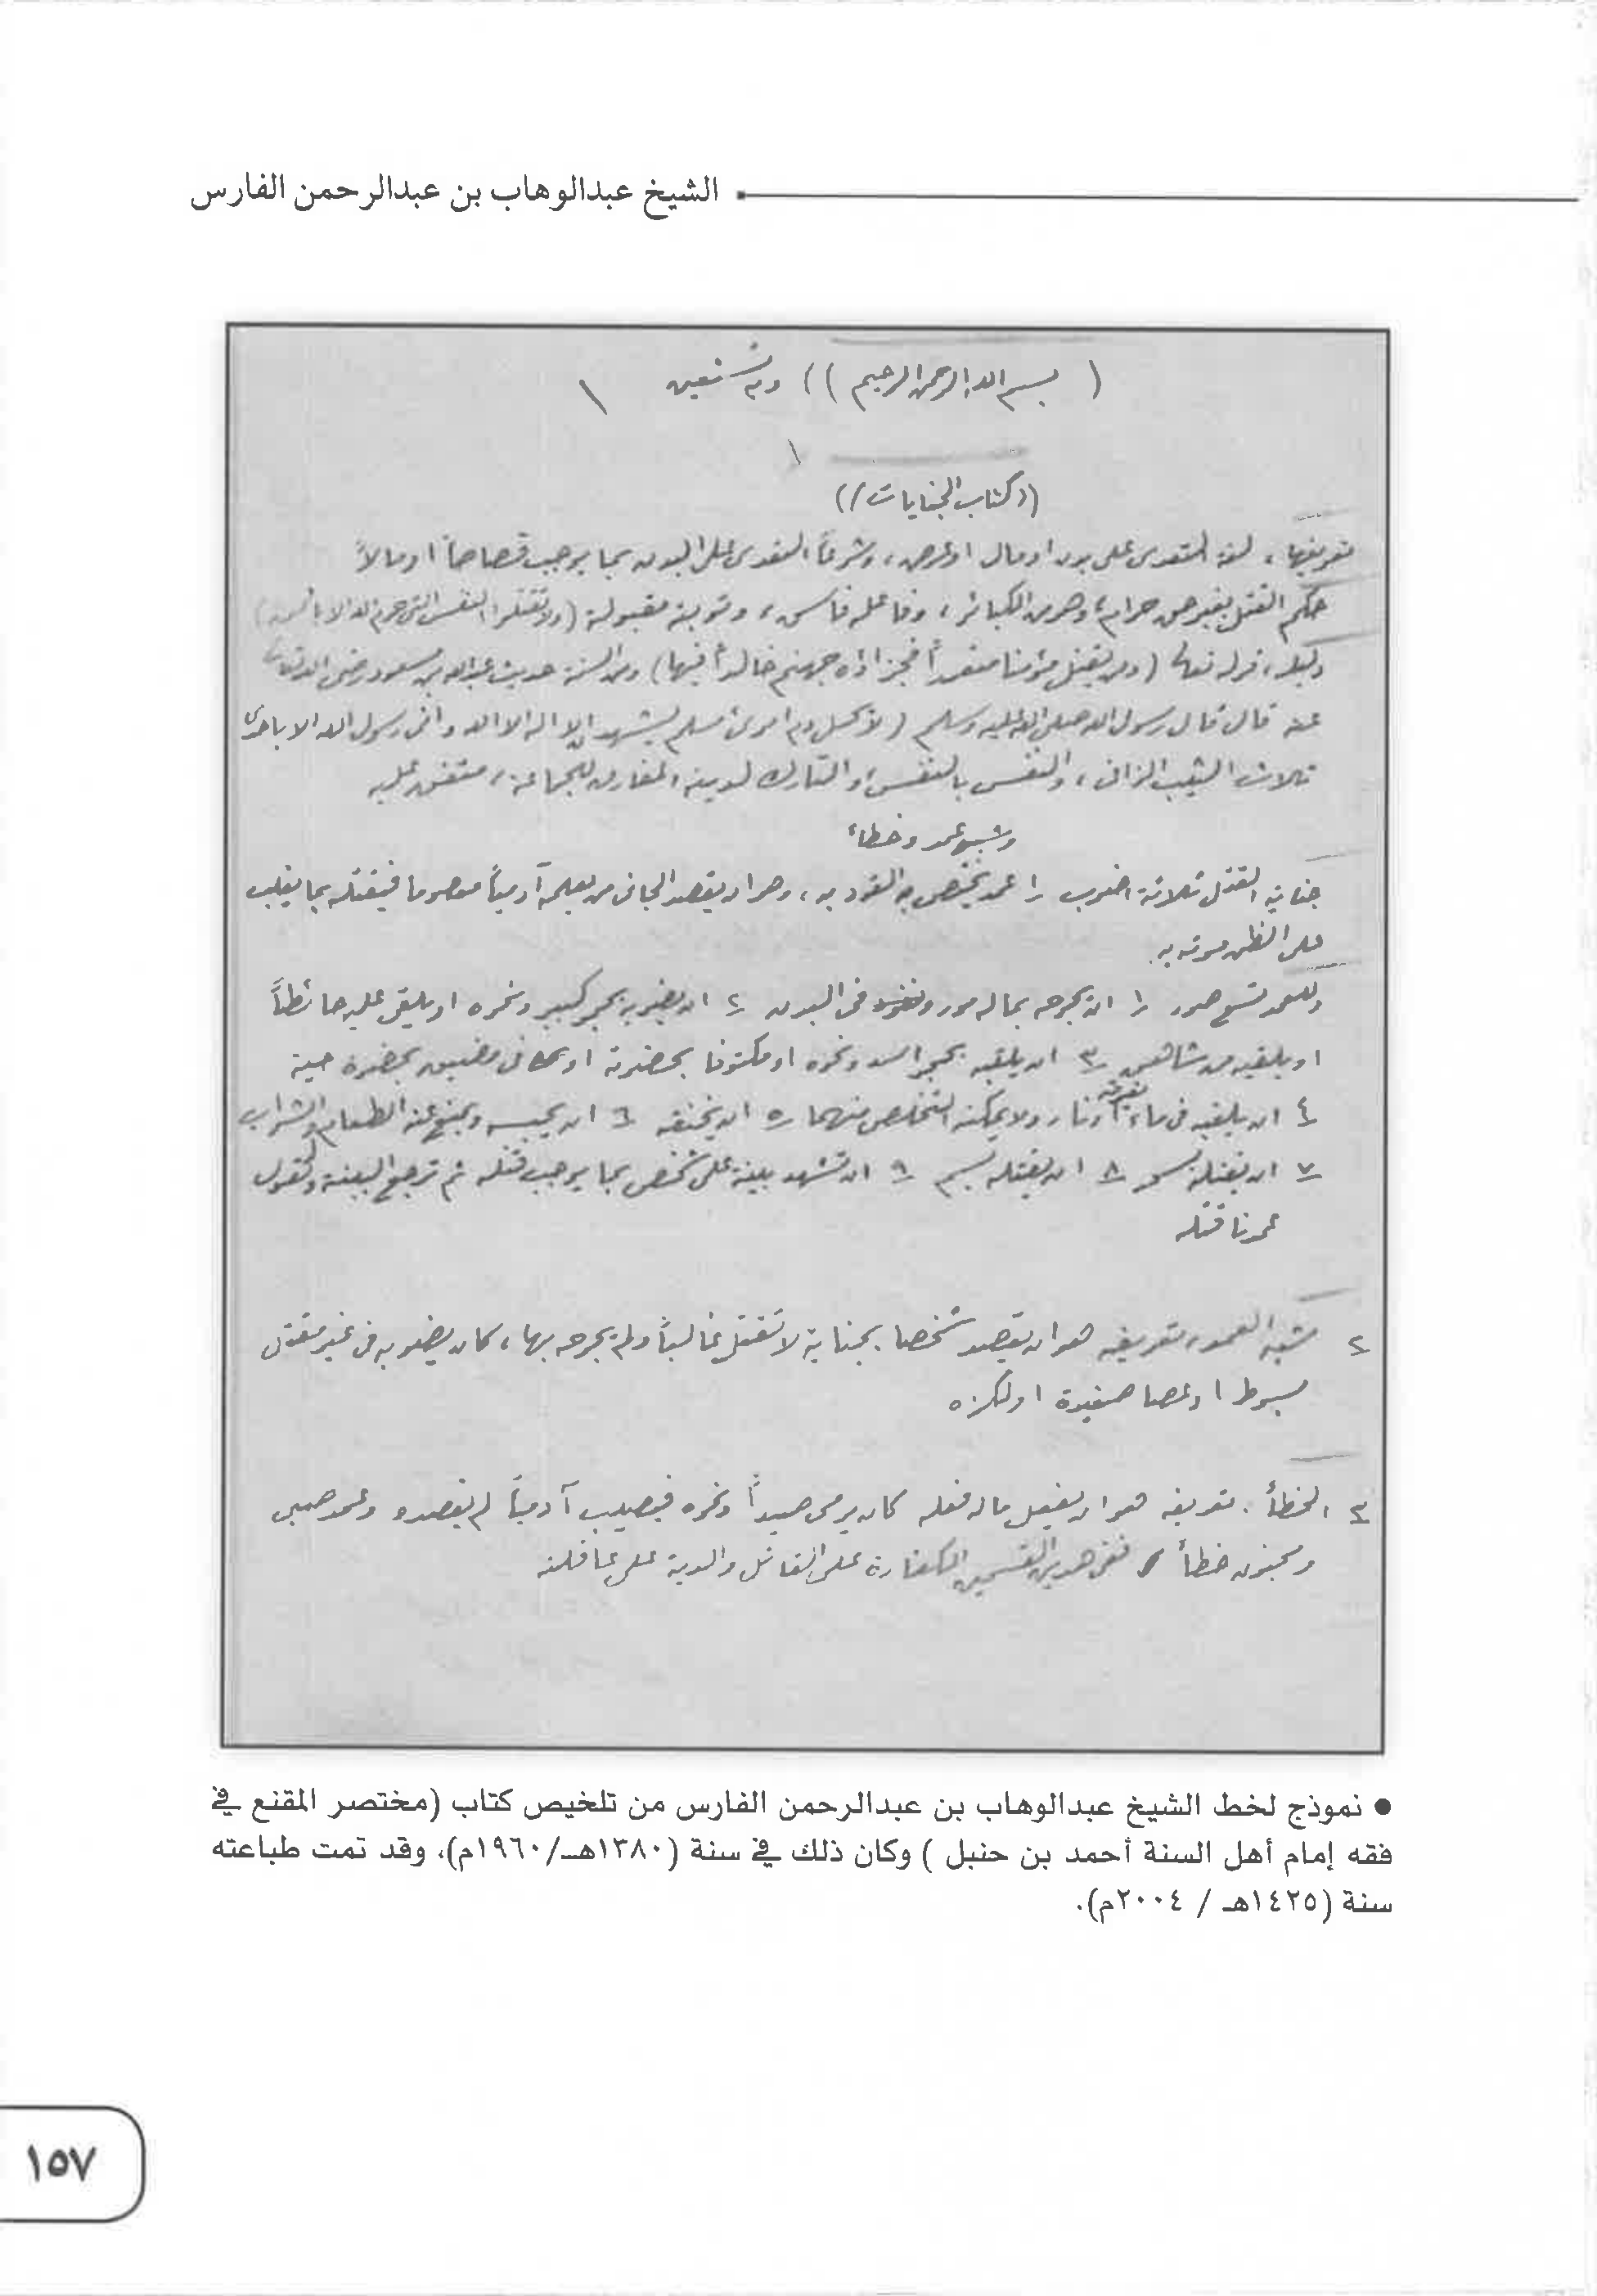 الشيخ عبدالوهاب بن عبدالرحمن الفارس
( بسم الله الرحمن الرحيم ) ) وبه نستعين ١
١
((كتاب الجنايات))
تعريفها، لغة التعدى على بدن او مال او عرض، وشرعاً التعدى على البدن بما يوجب قصاصاً او مالاً
حكم القتل بغير حق حرام، وهو من الكبائر، وفاعله فاسق، وتوبته مقبولة (ولا تقتلوا النفس التى حرم الله الا بالحق)
دليله، قوله تعالى (ومن يقتل مؤمنا متعمداً فجزاؤه جهنم خالداً فيها) ومن السنة حديث عبدالله بن مسعود رضى الله تعالى
عنه قال قال رسول الله صلى الله عليه وسلم (لا يحل دم امرئ مسلم يشهد ان لا اله الا الله وانى رسول الله الا باحدى
ثلاث الثيب الزانى، والنفس بالنفس، والتارك لدينه المفارق للجماعة، متفق عليه
وشبه عمد وخطاء
جناية القتل ثلاثة اضرب ١ عمد يختص به القود به، وهو ان يقصد الجانى من يعلمه آدمياً معصوما فيقتله بما يغلب
على الظن موته به
وللعمد تسع صور ١ ان يجرحه بما له مور ونفوذ فى البدن ٢ ان يضربه بحجر كبير ونحوه او يلقى عليه حائطاً
او يلقيه من شاهق ٣ ان يلقيه بحجر اسد ونحوه او مكتوفا بحضرته او فى مضيق بحضرة حية
٤ ان يلقيه فى ماء يغرقه او نار ولا يمكنه التخلص منهما ٥ ان يخنقه ٦ ان يحبسه ويمنع عنه الطعام والشراب
٧ ان يقتله بسحر ٨ ان يقتله بسم ٩ ان تشهد بينة على شخص بما يوجب قتله ثم ترجع البينة وتقول
عمدنا قتله
٢ شبه العمد، تعريفه هو ان يقصد شخصا بجناية لا تقتل غالباً ولم يجرحه بها، كان يضربه فى غير مقتل
بسوط او عصا صغيرة او لكزه
٣ الخطأ. تعريفه هو ان يفعل ماله فعله كان يرمى صيداً ونحوه فيصيب آدمياً لم يقصده وعمد صبى
ومجنون خطأ ففى هذين القسمين الكفارة على القاتل والدية على عاقلته
● نموذج لخط الشيخ عبدالوهاب بن عبدالرحمن الفارس من تلخيص كتاب (مختصر المقنع في
فقه إمام أهل السنة أحمد بن حنبل ) وكان ذلك في سنة (١٣٨٠هـ/١٩٦٠م)، وقد تمت طباعته
سنة (١٤٢٥هـ / ٢٠٠٤م).
١٥٧